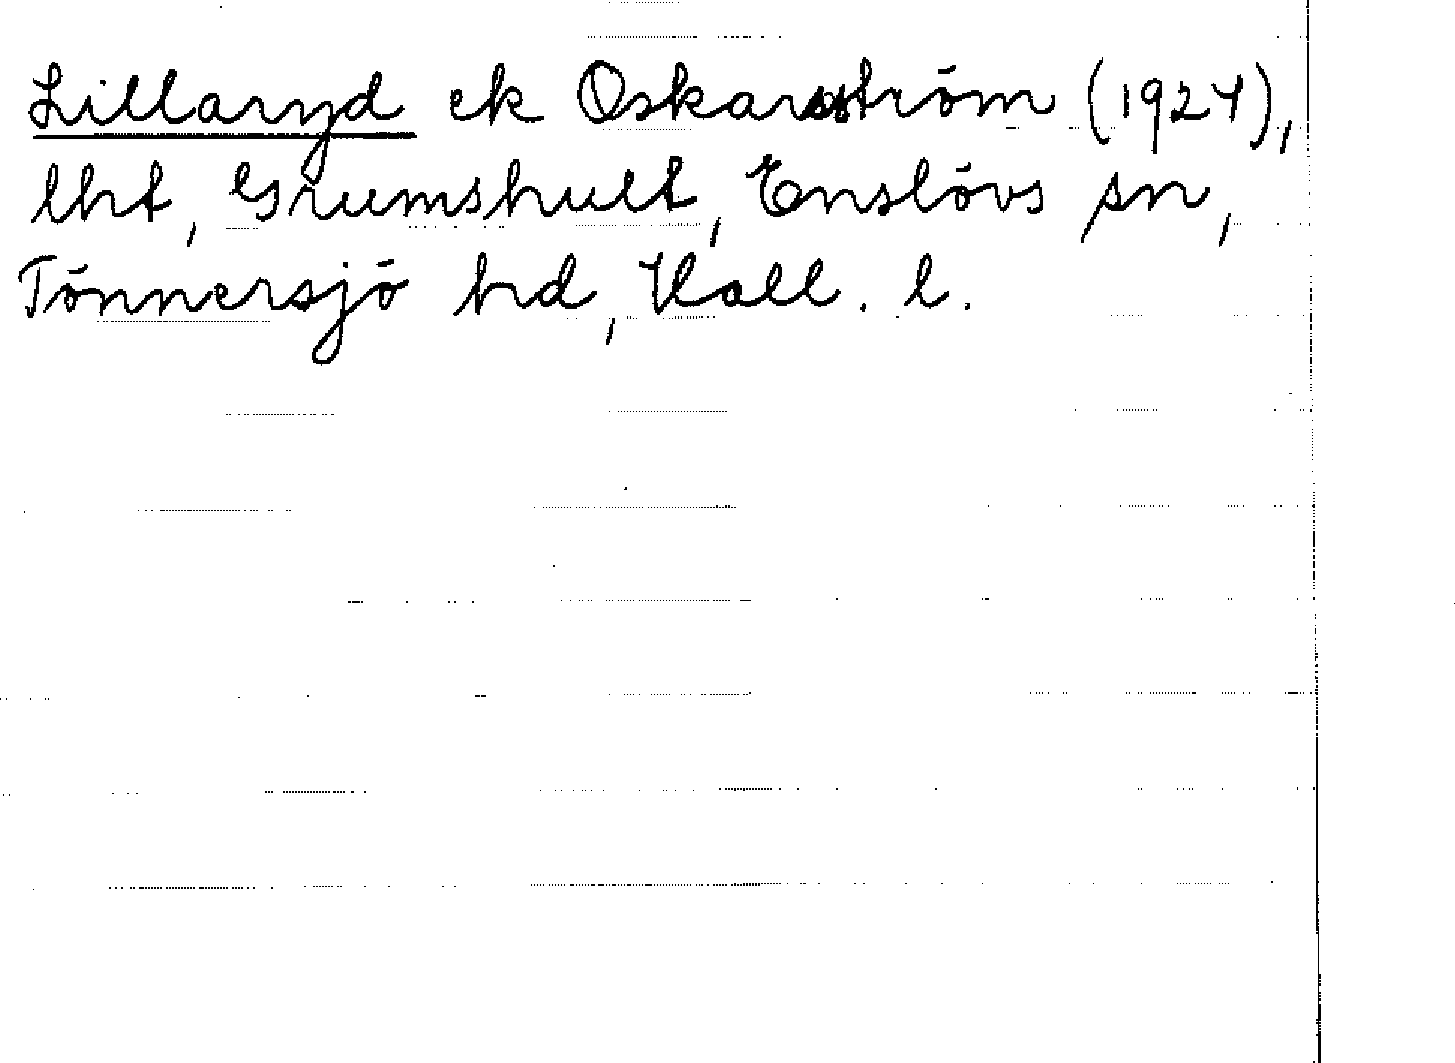 Lillaryd ek Oskarsström (1927),
lht, Grumshult, Enslövs sn,
Tönnersjö hd, Hall. l.